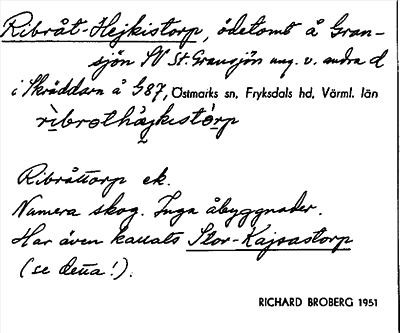 Ribråt-Hejkistorp, ödetomt å Gran-
sjön SV St. Gransjön ung. v. andra d
i Skräddarn å G87, Östmarks sn, Fryksdals hd, Värml. län
rìbrɔthàjkistɔ́rp
Ribråttorp ek.
Numera skog. Inga åbyggnader.
Har även kallats Stor-Kajsastorp
(se detta!).
RICHARD BROBERG 1951